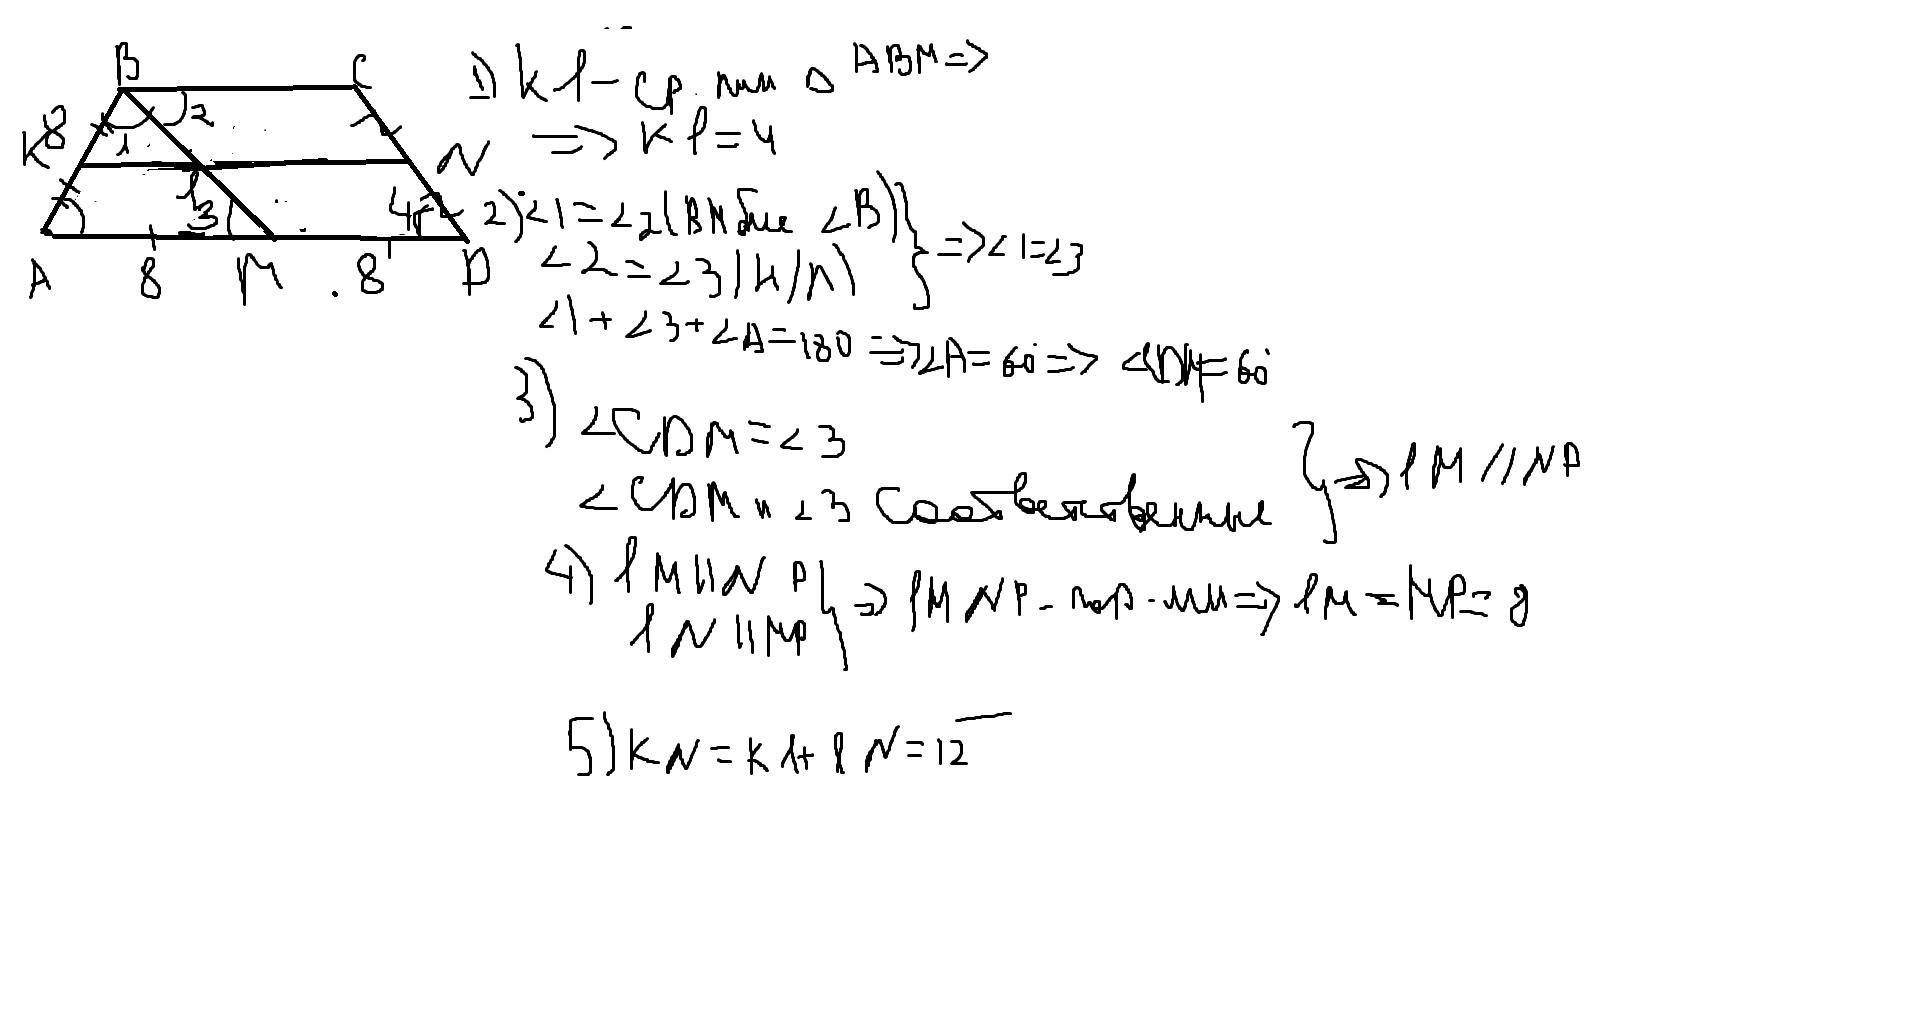 B C
K 8 1 2 N
l 3 4
A 8 M 8 D
1) Kl - ср. лин Δ ABM =>
=> Kl = 4
2) ∠1 = ∠2 (BM бис ∠B)
∠2 = ∠3 (н/л) } => ∠1 = ∠3
∠1 + ∠3 + ∠A = 180 => ∠A = 60° => = 60°
3) ∠CDM = ∠3
∠CDM и ∠3 соответственные } => lM // ND
4) lM || ND
lN || MD } => lMND - пар-мм => lN = MD = 8
5) KN = Kl + lN = 12